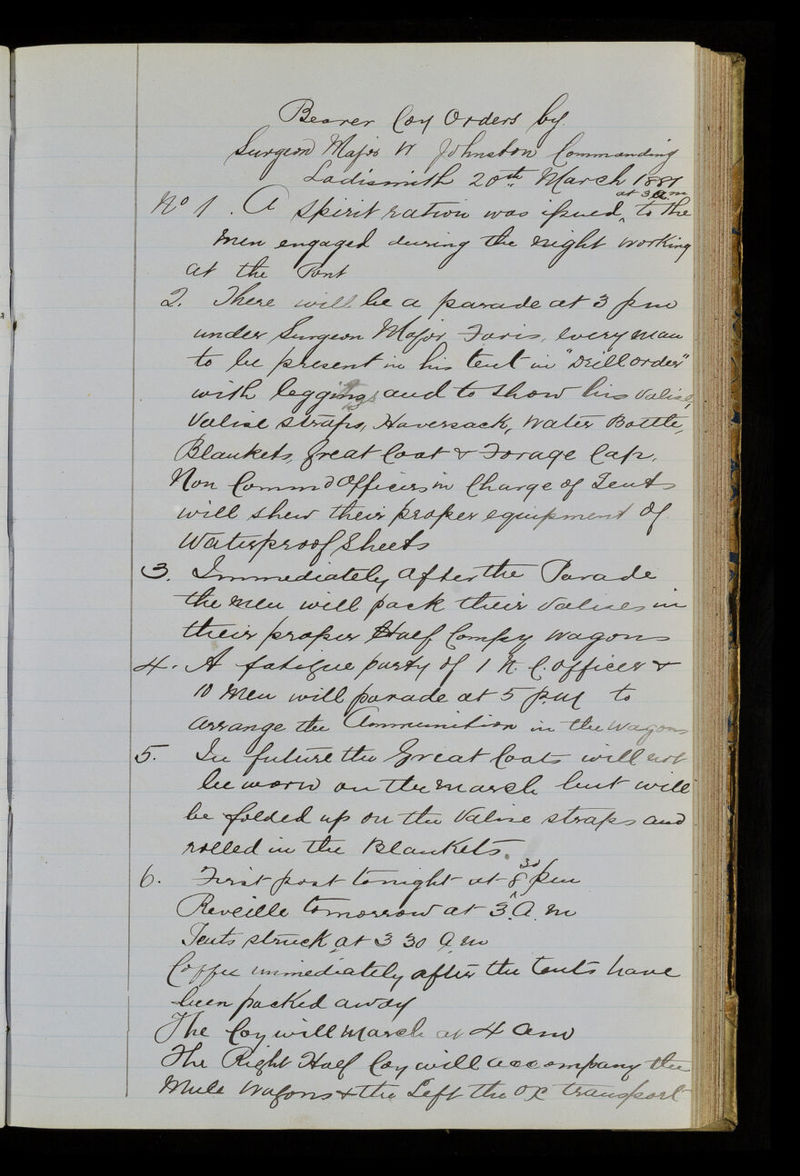 Bearer Coy Orders by
Surgeon Major W Johnston Commanding
Ladismith 20th March 1881
No 1. A Spirit ration was issued at 3 a.m to the
men engaged during the night working
at the Pont
2. There will be a parade at 3 pm
under Surgeon Major Faris, every man
to be present in his tent in "Drill order"
with leggings and to show his Valise,
Valise straps, Haversack, Water Bottle,
Blankets, Great Coat & Forage Cap.
Non Commd Officers in Charge of Tents
will shew their proper equipment of
Waterproof Sheets
3. Immediately after the Parade
the men will pack their Valises in
their proper Half Compy Wagons
4. A fatigue party of 1 N.C. officer &
10 Men will parade at 5 p.m to
arrange the Ammunition in the wagons
5. In future the Great Coats will not
be worn on the march but will
be folded up on the Valise straps and
rolled in the Blankets.
6. First post tonight at 8 30 pm
Reveille tomorrow at 3. a.m
Tents struck at 3 30 a.m
Coffee immediately after the tents have
been packed away
The Coy will March at 4 am
The Right Half Coy will accompany the
Mule Wagons & the Left the Ox transport